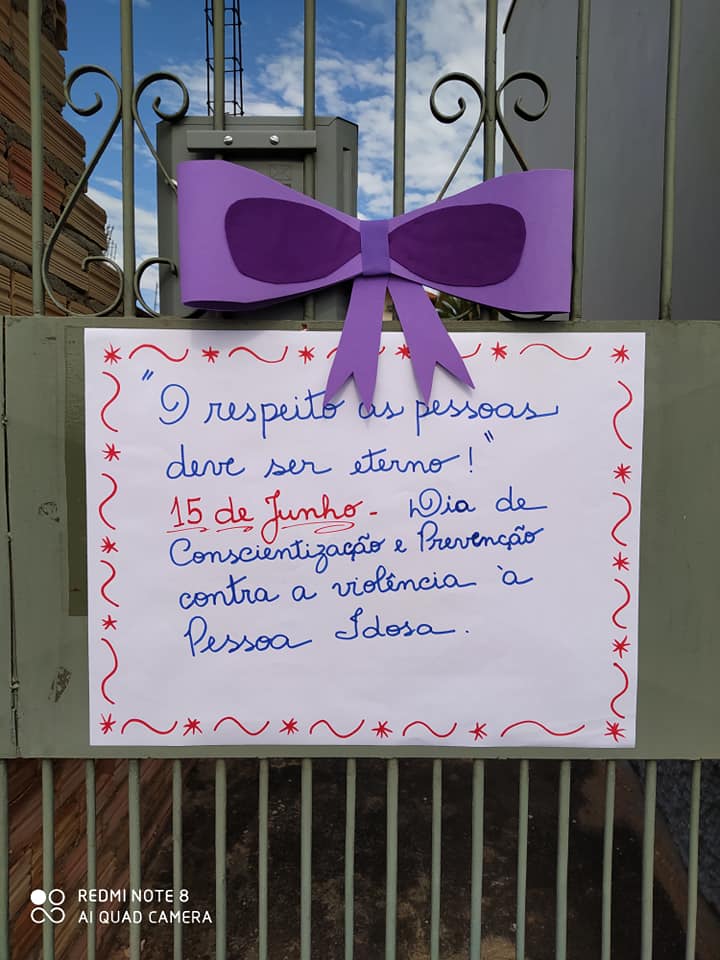 "O respeito as pessoas
deve ser eterno!"
15 de Junho - Dia de
Conscientização e Prevenção
contra a violência à
Pessoa Idosa.
REDMI NOTE 8
AI QUAD CAMERA